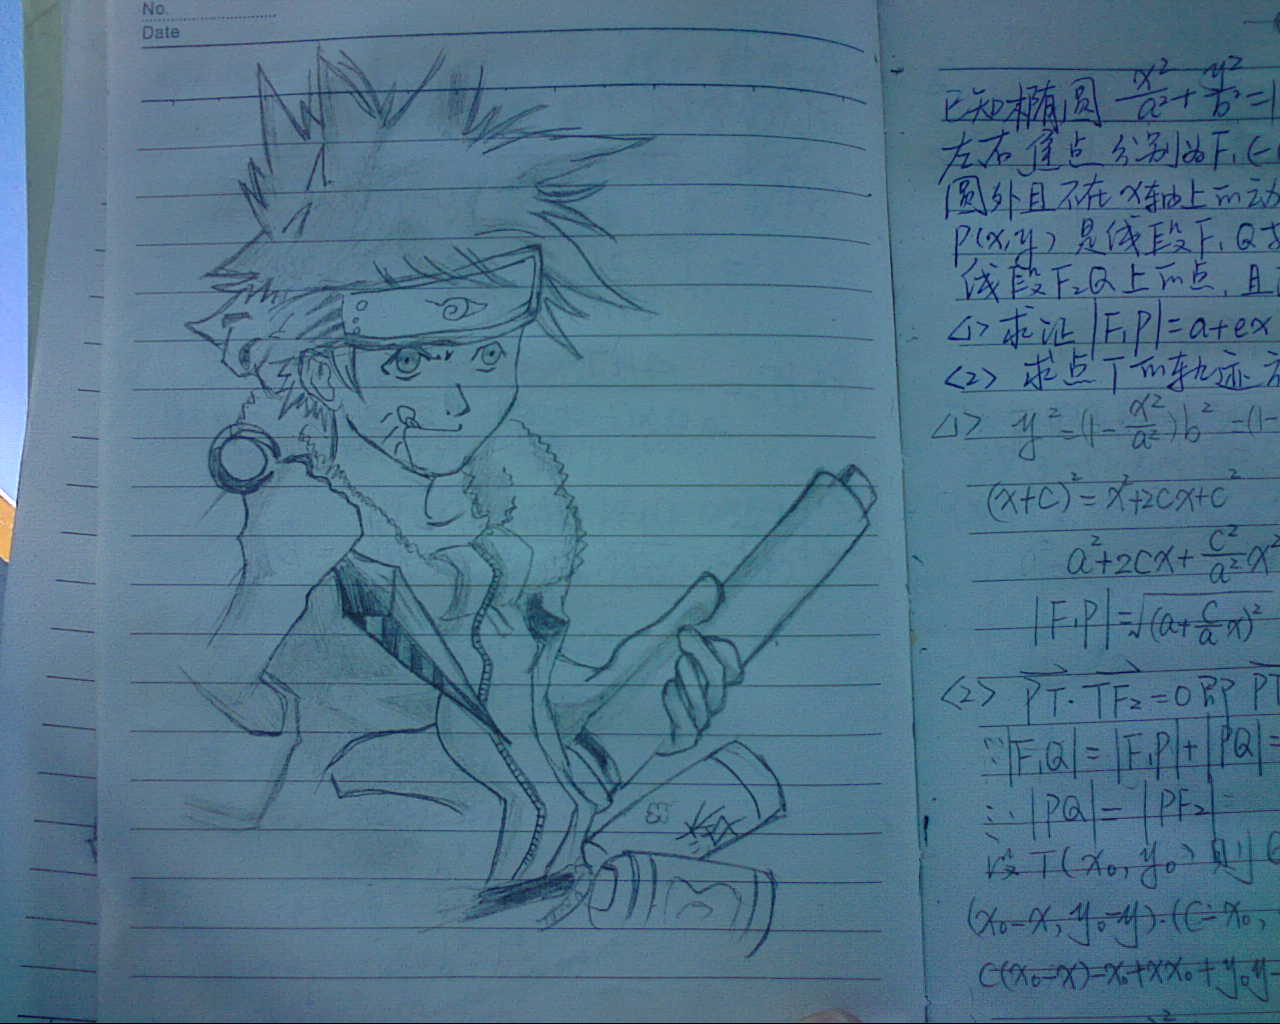 No.
Date
已知椭圆 x²/a² + y²/b² = 1
左右焦点分别为F₁(-
圆外且不在x轴上的动
P(x,y) 是线段F₁Q
线段F₂Q上的点, 且
<1> 求证 |F₁P| = a+ex
<2> 求点T的轨迹
<1> y² = (1 - x²/a²)b² - (1-
(x+c)² = x²+2cx+c²
a²+2cx+ c²/a² x²
|F₁P| = √(a+ c/a x)²
<2> PT·TF₂ = 0 即 PT
∵|F₁Q| = |F₁P|+|PQ| =
∴|PQ| = |PF₂|
设T(x₀, y₀) 则
(x₀-x, y₀-y)·(c-x₀,
c(x₀-x)-x₀+xx₀+y₀y-